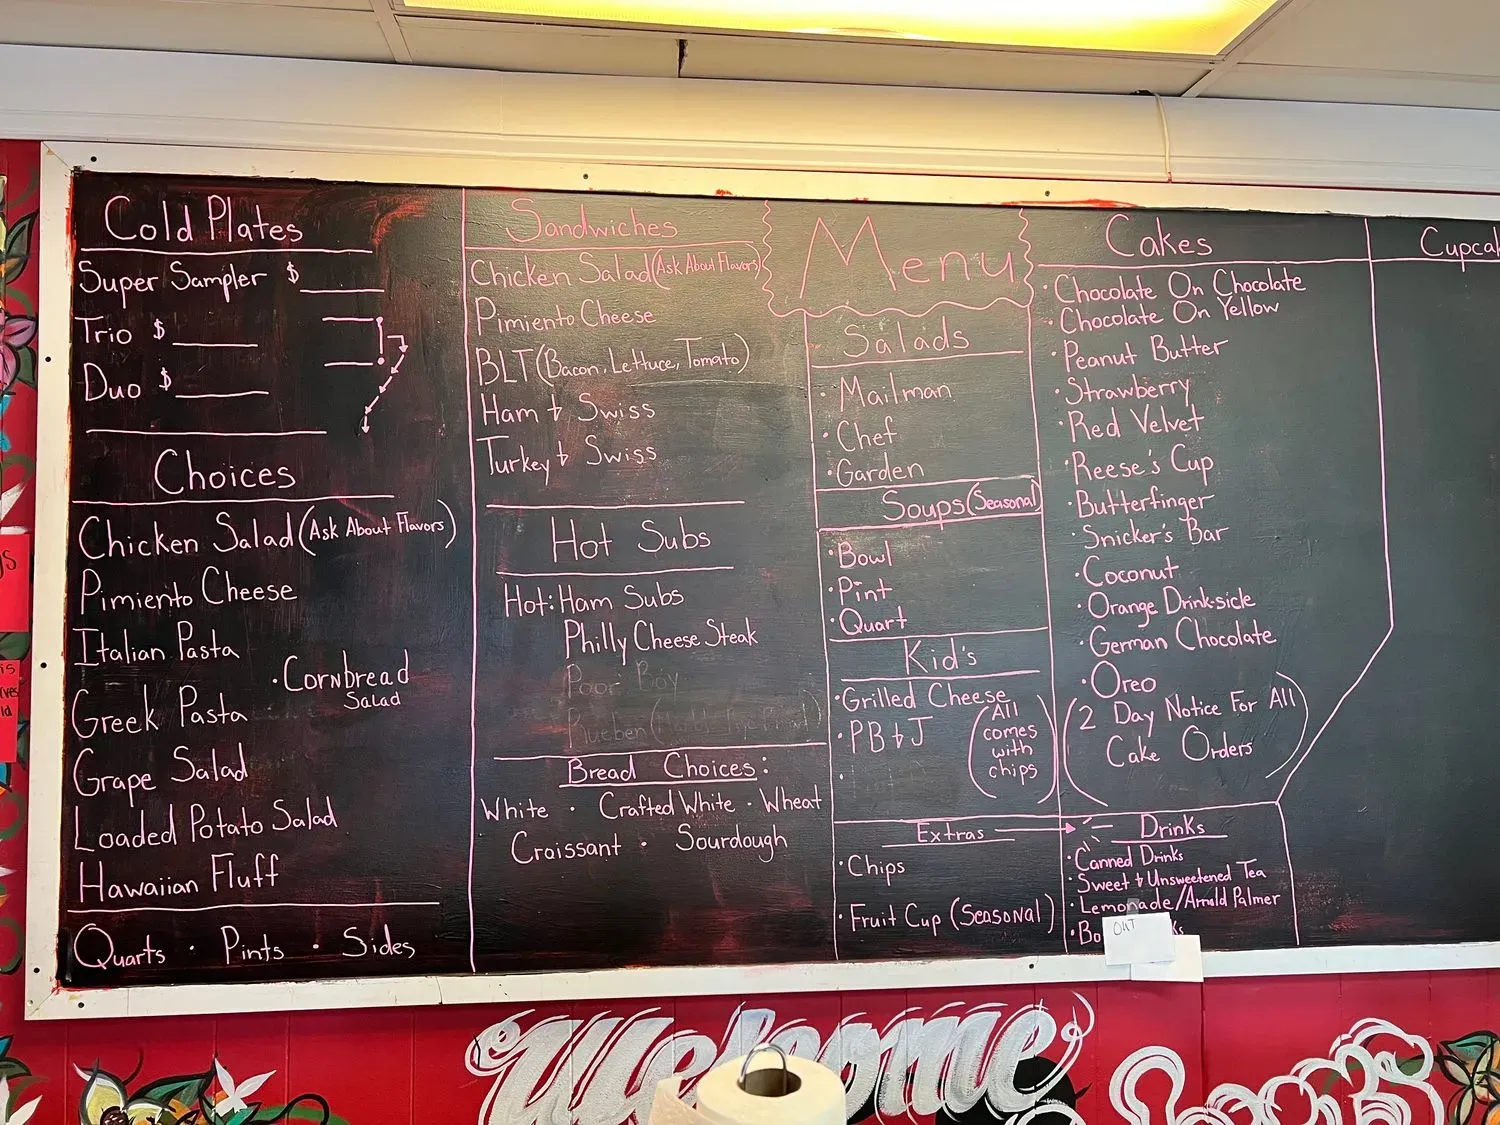 Cold Plates
Super Sampler $
Trio $
Duo $
Choices
Chicken Salad (Ask About Flavors)
Pimiento Cheese
Italian Pasta
· Cornbread
Salad
Greek Pasta
Grape Salad
Loaded Potato Salad
Hawaiian Fluff
Quarts · Pints · Sides
Sandwiches
Chicken Salad (Ask About Flavors)
Pimiento Cheese
BLT (Bacon, Lettuce, Tomato)
Ham & Swiss
Turkey & Swiss
Hot Subs
Hot: Ham Subs
Philly Cheese Steak
Poor Boy
Rueben
Bread Choices:
White · Crafted White · Wheat
Croissant · Sourdough
Menu
Salads
· Mailman
· Chef
· Garden
Soups (Seasonal)
· Bowl
· Pint
· Quart
Kid's
· Grilled Cheese
· PB & J
(All
comes
with
chips)
Extras
· Chips
· Fruit Cup (Seasonal)
Cakes
· Chocolate On Chocolate
· Chocolate On Yellow
· Peanut Butter
· Strawberry
· Red Velvet
· Reese's Cup
· Butterfinger
· Snicker's Bar
· Coconut
· Orange Drink-sicle
· German Chocolate
· Oreo
(2 Day Notice For All
Cake Orders)
Drinks
· Canned Drinks
· Sweet & Unsweetened Tea
· Lemonade/Arnold Palmer
OUT
Welcome